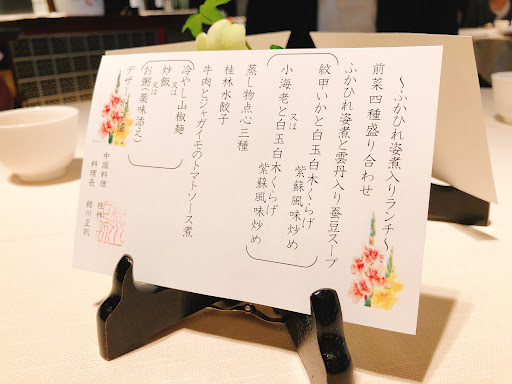 ～ふかひれ姿煮入りランチ～
前菜四種盛り合わせ
ふかひれ姿煮と雲丹入り蚕豆スープ
紋甲いかと白玉白木くらげ
紫蘇風味炒め
又は
小海老と白玉白木くらげ
紫蘇風味炒め
蒸し物点心三種
桂林水餃子
牛肉とジャガイモのトマトソース煮
冷やし山椒麺
又は
炒飯
又は
お粥(薬味添え)
デザート
種
中国料理 桂林
料理長 綾川正則